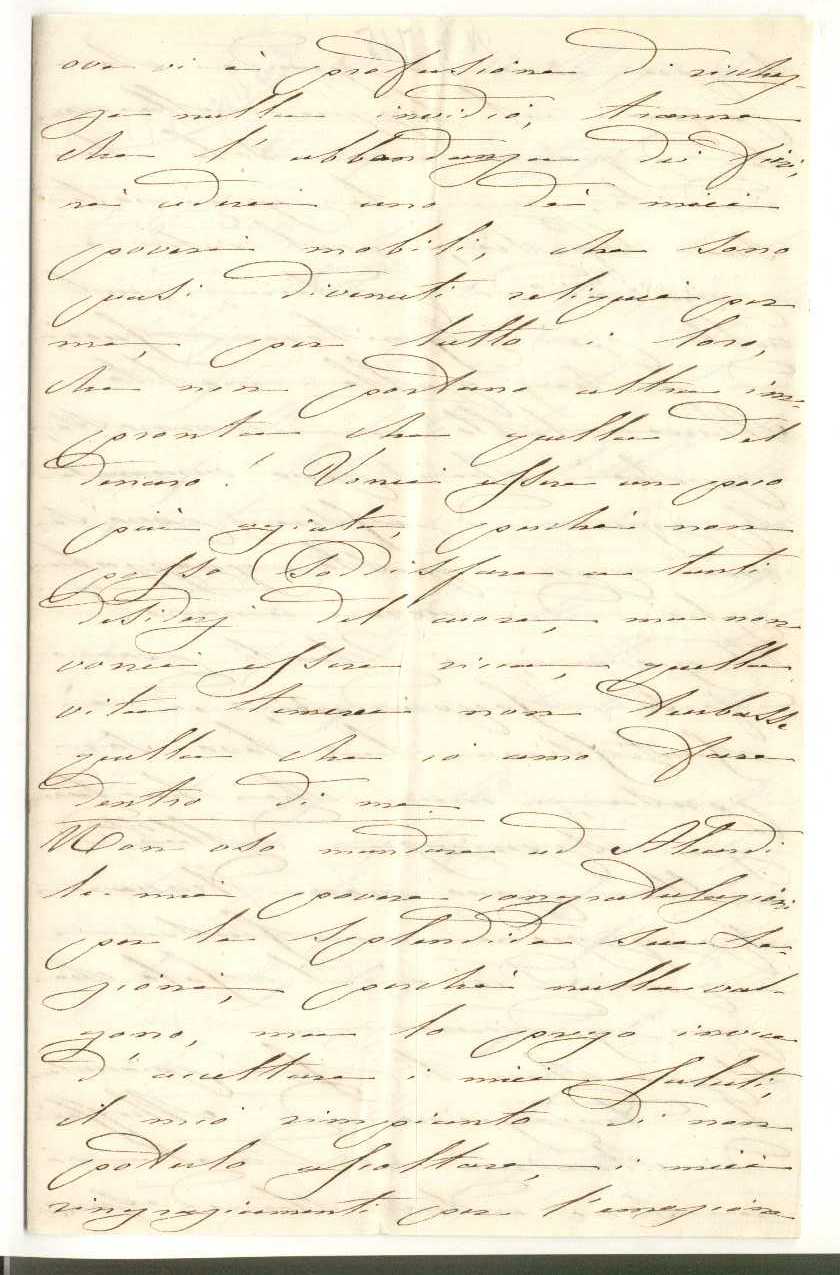 ove vi è profusione di richez-
ze nulla invidio, tranne
che l'abbondanza dei fiori,
nè cederei uno dei miei
poveri mobili, che sono
quasi divenuti reliquie per
me, per tutto i loro,
che non portano altra im-
pronta che quella del
denaro! Vorrei essere un poco
più agiata, perchè non
posso soddisfare a tanti
desiderj del cuore, ma non
vorrei essere ricca, quella
vita temerei non turbasse
quella che io amo fare
dentro di me.
Non oso mandare ad Aleardi
le mie povere congratulazioni
per le splendide sue le-
zioni, perchè nulla val-
gono, ma lo prego invece
d'accettare i miei saluti,
il mio rimpianto di non
poterlo ascoltare, i miei
ringraziamenti per l'emozione